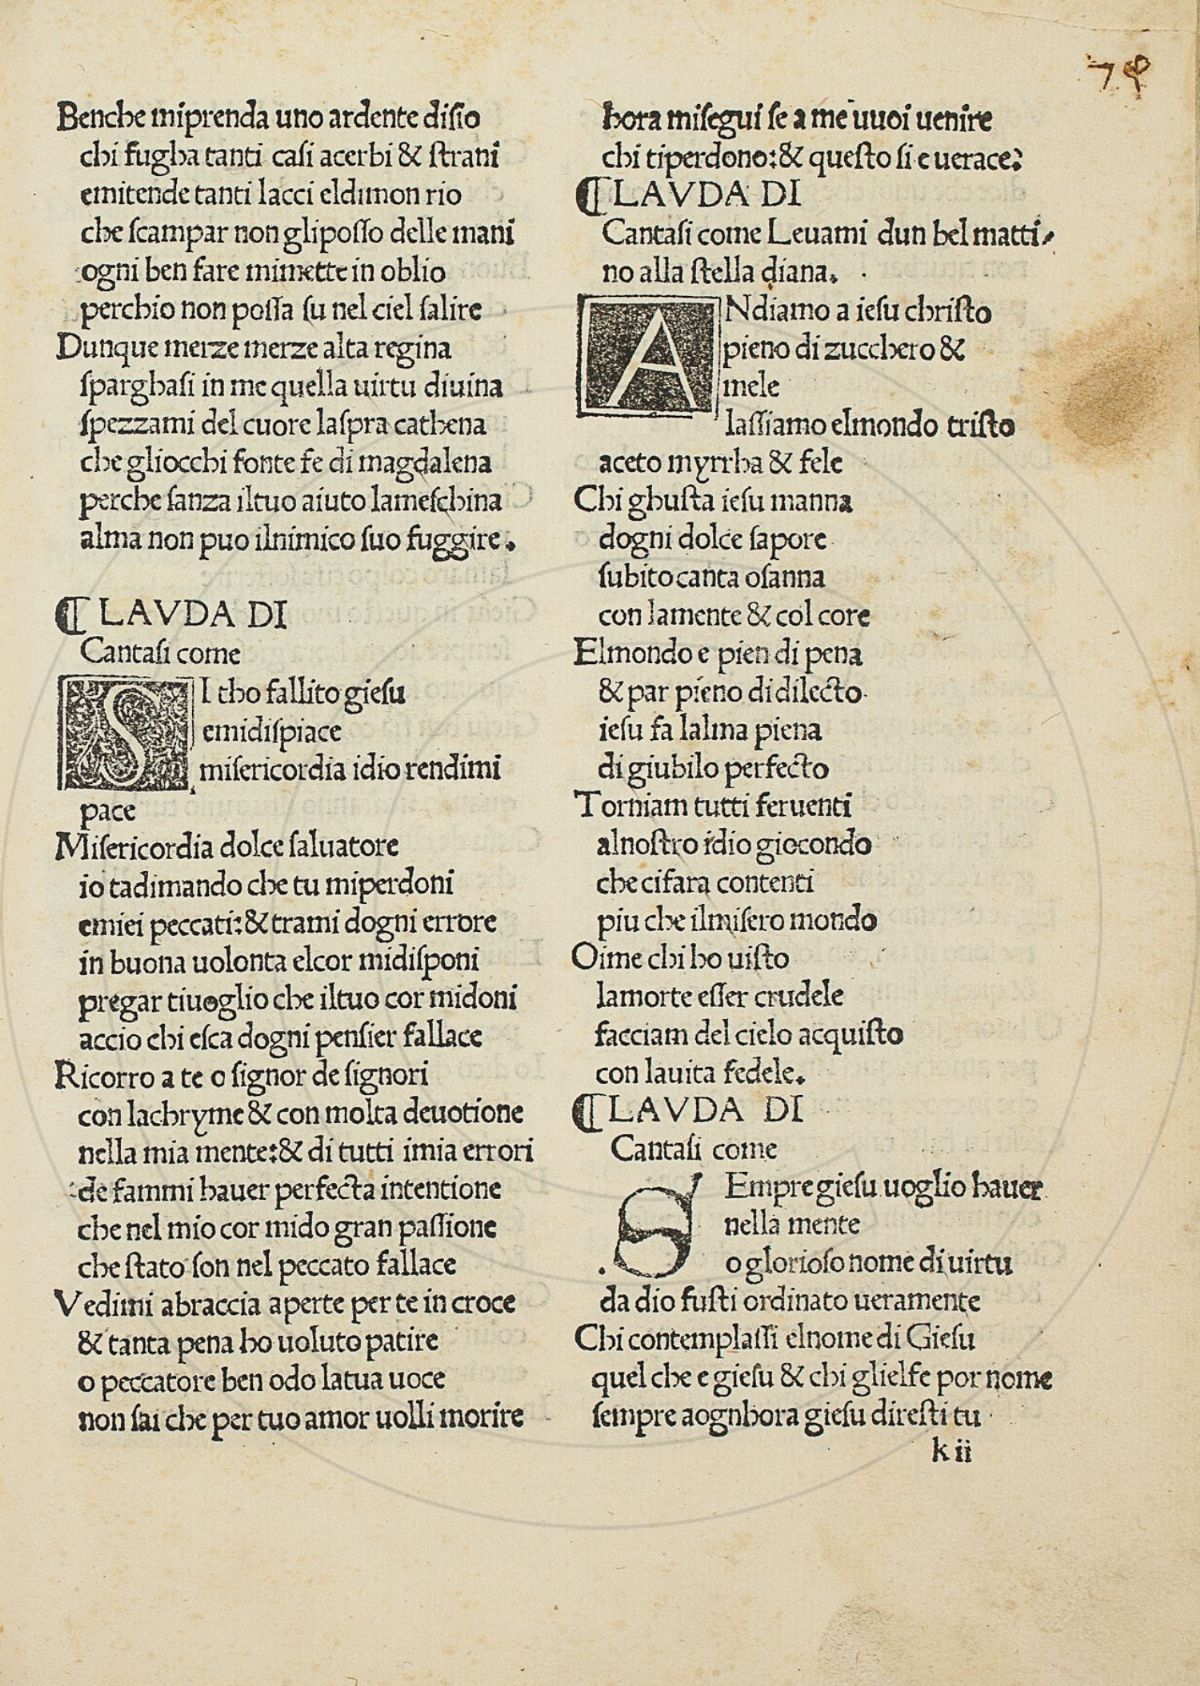 74
Benche miprenda uno ardente disio
chi fugha tanti casi acerbi & strani
emitende tanti lacci eldimon rio
che scampar non gliposso delle mani
ogni ben fare mimette in oblio
perchio non possa su nel ciel salire
Dunque merze merze alta regina
sparghasi in me quella uirtu diuina
spezzami del cuore laspra cathena
che gliocchi fonte fe di magdalena
perche sanza iltuo aiuto lameschina
alma non puo ilnimico suo fuggire.
¶ LAVDA DI
Cantasi come
SI tho fallito giesu
emidispiace
misericordia idio rendimi
pace
Misericordia dolce saluatore
io tadimando che tu miperdoni
emiei peccati:& trami dogni errore
in buona uolonta elcor midisponi
pregar tiuoglio che iltuo cor midoni
accio chi esca dogni pensier fallace
Ricorro a te o signor de signori
con lachryme & con molta deuotione
nella mia mente:& di tutti imia errori
de fammi hauer perfecta intentione
che nel mio cor mido gran passione
che stato son nel peccato fallace
Vedimi abraccia aperte per te in croce
& tanta pena ho uoluto patire
o peccatore ben odo latua uoce
non sai che per tuo amor uolli morire
hora misegui se a me uuoi uenire
chi tiperdono:& questo si e uerace?
¶LAVDA DI
Cantasi come Leuami dun bel matti-
no alla stella diana.
ANdiamo a iesu christo
pieno di zucchero &
mele
lassiamo elmondo tristo
aceto myrrha & fele
Chi ghusta iesu manna
dogni dolce sapore
subito canta osanna
con lamente & col core
Elmondo e pien di pena
& par pieno di dilecto
iesu fa lalma piena
di giubilo perfecto
Torniam tutti feruenti
alnostro idio giocondo
che cifara contenti
piu che ilmisero mondo
Oime chi ho uisto
lamorte esser crudele
facciam del cielo acquisto
con lauita fedele.
¶LAVDA DI
Cantasi come
SEmpre giesu uoglio hauer
nella mente
o glorioso nome di uirtu
da dio fusti ordinato ueramente
Chi contemplassi elnome di Giesu
quel che e giesu & chi glielfe por nome
sempre aognhora giesu diresti tu
k ii